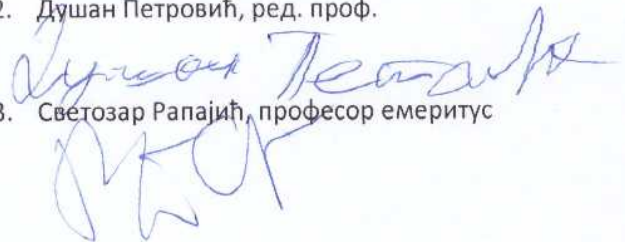 2. Душан Петровић, ред. проф.
Душан Петровић
3. Светозар Рапајић, професор емеритус